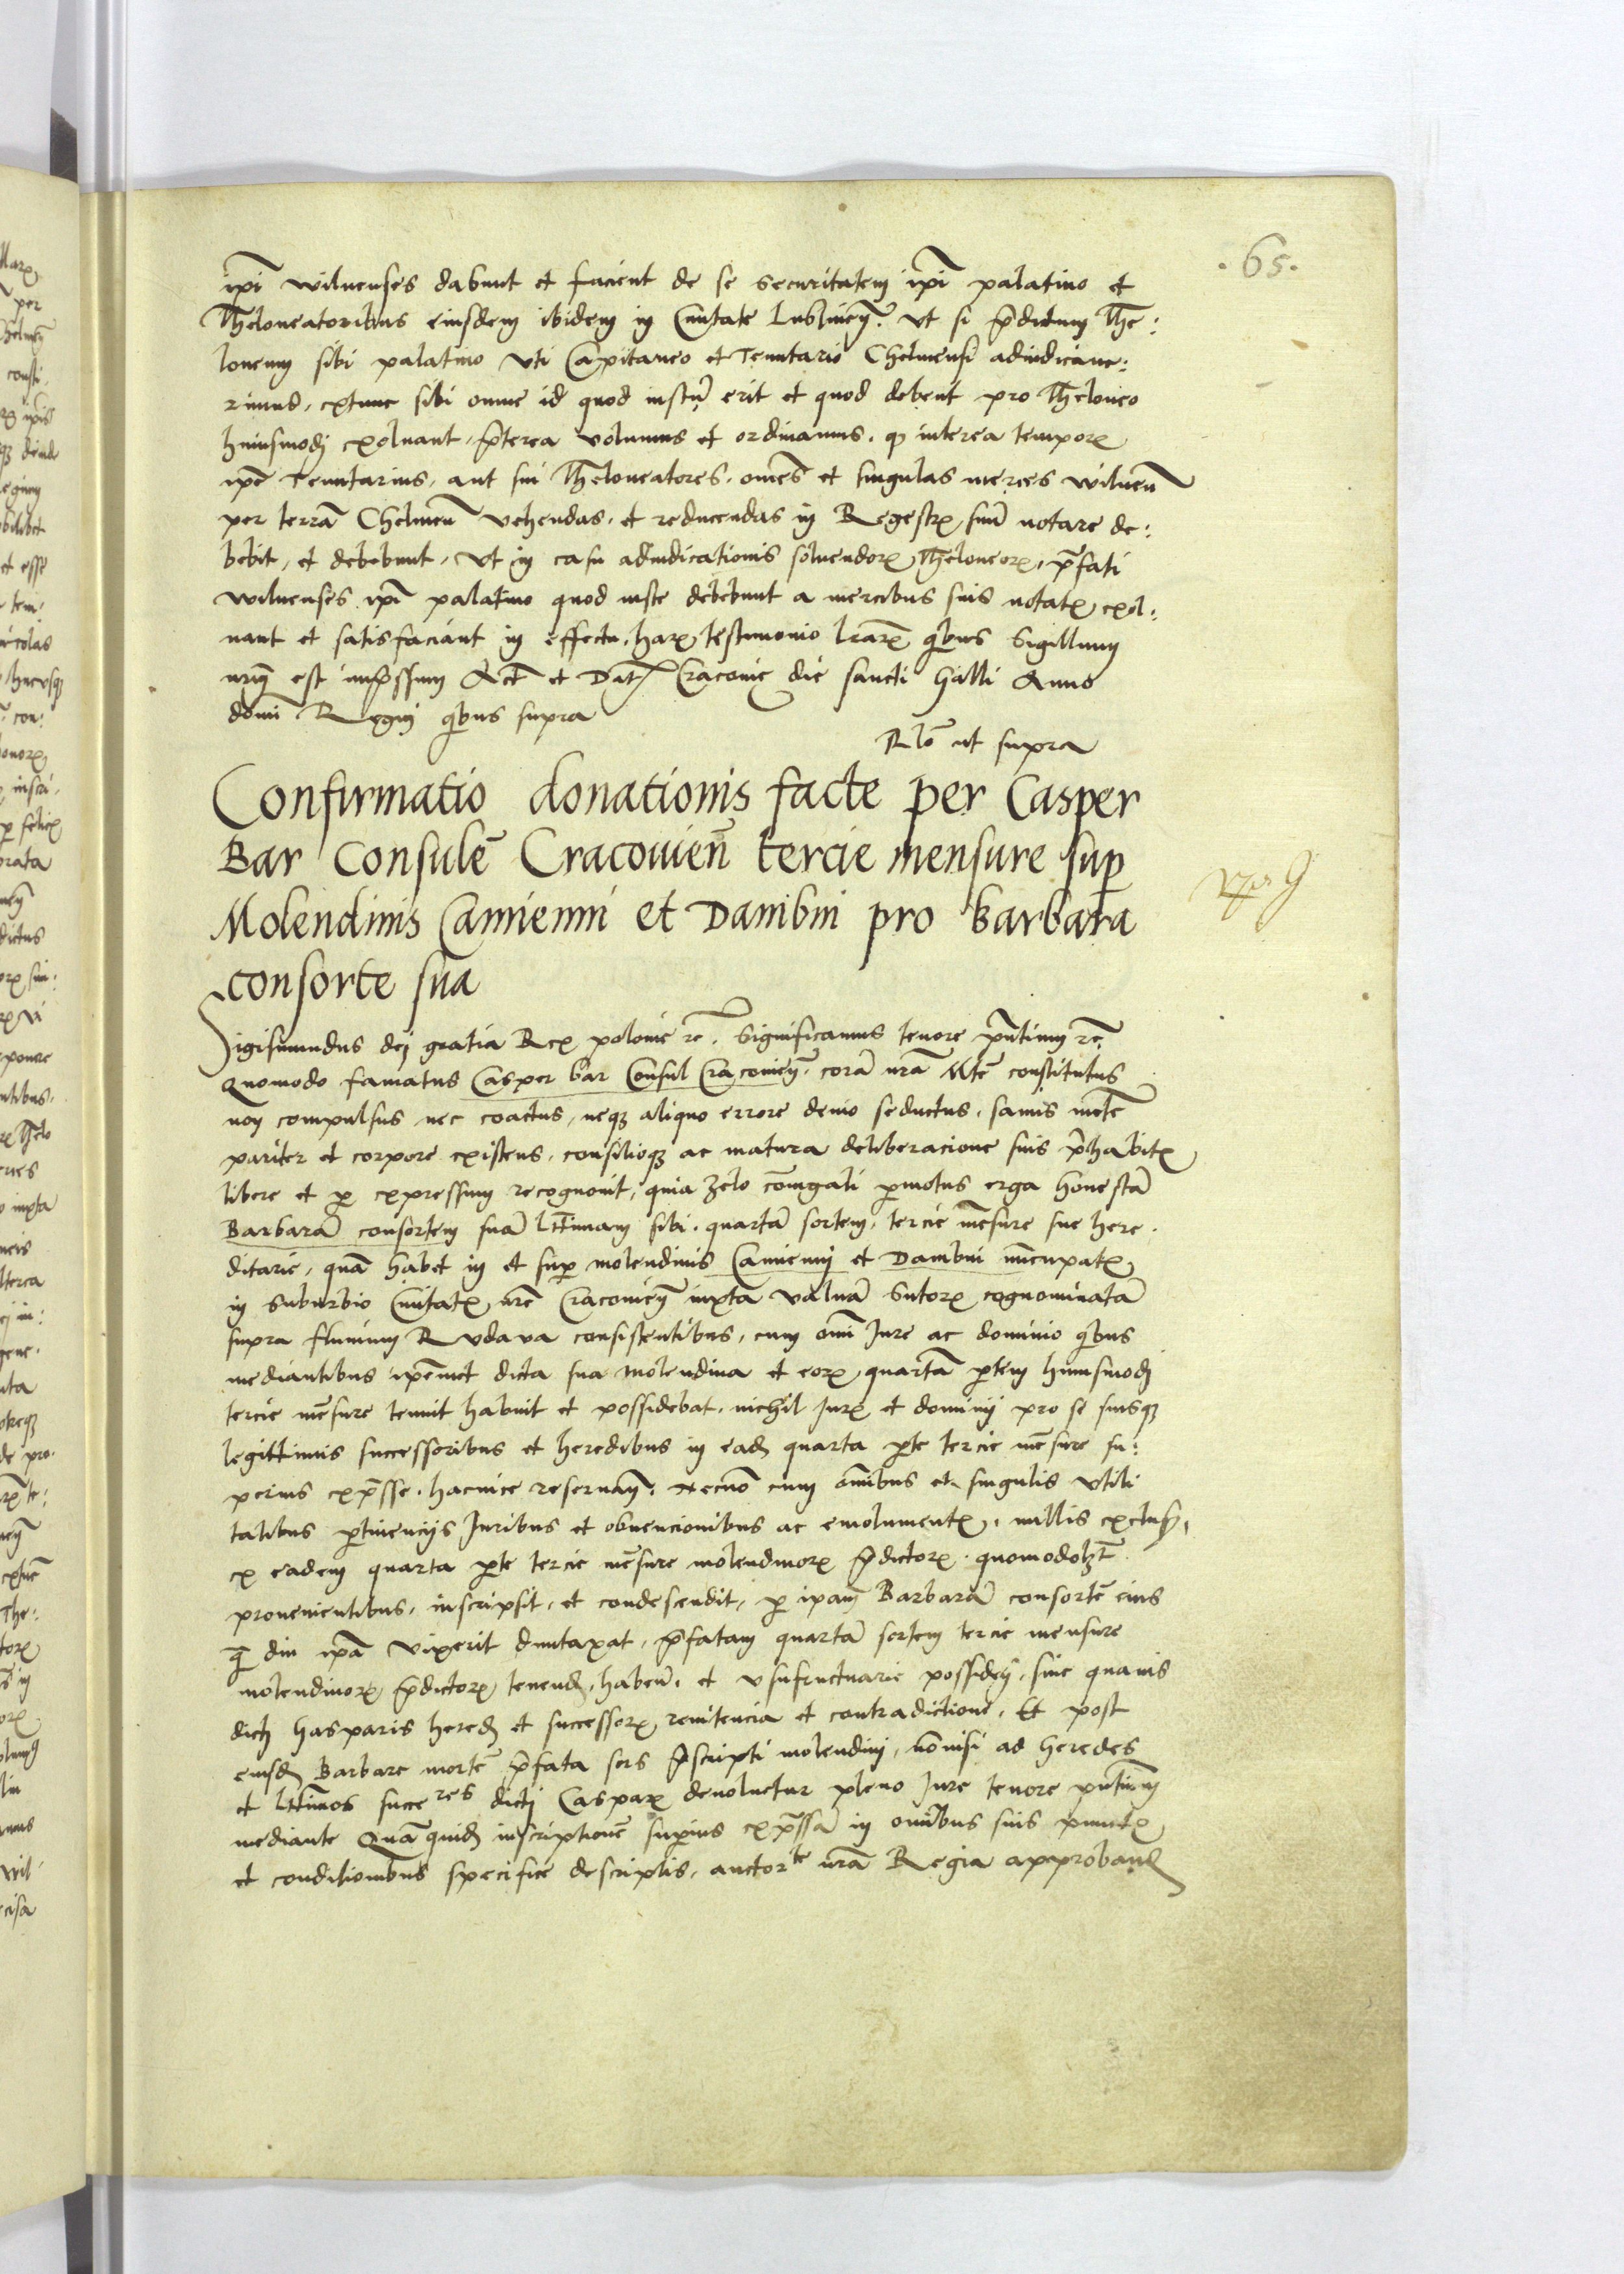 .65.
ip̄i wilnenses dabunt et facient de se securitatem ip̄i palatino et
Theloneatoribus eiusdem ibidem in Ciuitate Lublinen̄. Vt si p̄dictum The:
loneum sibi palatino vti Capitaneo et Tenutario Chelmensi adiudicaue:
rimus, extunc sibi omne id quod iustū erit et quod debent pro Theloneo
huiusmodi exoluant, p̄terea volumus et ordinamus, ꝙ interea tempore
ip̄e Tenutarius, aut sui Theloneatores, om̄es et singulas merces wilnen̄
per terrā Chelmen̄ vehendas, et reducendas in Regestrꝭ suū notare de:
bebit, et debebunt, Vt in casu adiudicationis soluendoꝝ Theloneoꝝ, p̄fati
wilnenses ip̄i palatino quod iuste debebunt a mercibus suis notatꝭ exol:
uant et satisfaciant in effectu, haꝝ testimonio l̄raꝝ q̄bus Sigillum
nr̄m est imp̄ssum Act̄ et Dat̄ Cracouie die sancti Galli Anno
domī Regni q̄bus supra
Rl̄o ut supra
Confirmatio donationis facte per Casper
Bar Consulē Cracouien̄ tercie mensure suꝑ
Molendinis Camienni et Dambni pro barbara
consorte sua
Sigismundus dei gratia Rex polonie rc̄. Significamus tenore pn̄tium rc̄
Quomodo famatus Casper bar Consul Cracouien̄, corā nr̄a Mte constitutus
non compulsus nec coactus, neqꝫ aliquo errore deuio seductus, sanus mēte
pariter et corpore existens, consilioqꝫ ac matura deliberacione suis p̄habitꝭ
libere et ꝑ expressum recognouit, quia zelo cōiugali ꝑmotus erga honestā
Barbarā consortem suā lt̄timam sibi, quartā sortem, tercie mēsure sue here.
ditarie, quā habet in et suꝑ molendinis Camienny et Dambni nūcupatꝭ
in suburbio Ciuitatꝭ nr̄e Cracouien̄ iuxta valuā Sutoꝝ cognominatā
supra fluuium Rudava consistentibus, cum om̄i Iure ac dominio q̄bus
mediantibus ip̄emet dicta sua molendina et eoꝝ quartā ꝑtem huiusmodi
tercie mēsure tenuit habuit et possidebat, nichil Iurꝭ et dominij pro se suisqꝫ
legittimis successoribus et heredibus in eadē quarta ꝑte tercie mēsure su:
perius exp̄sse, hacuice reseruan̄, Necnō cum om̄ibus et singulis vtili
tatibus ꝑtinencijs Iuribus et obuencionibus ac emolumentꝭ, nullis exclusꝭ,
ex eadem quarta ꝑte tercie mēsure molendinoꝝ p̄dictoꝝ quomodolꝫt
prouenientibus, inscripsit, et condescendit, ꝑ ip̄am Barbarā consortē eius
q̄ diu ip̄a vixerit duntaxat, p̄fatam quartā sortem tercie mensure
molendinoꝝ p̄dictoꝝ tenend̄, haben̄, et vsufructuarie possiden̄, sine quauis
dicti hasparis hered̄ et successoꝝ renitencia et contradictione. Et post
eiusd̄ Barbare mortē p̄fata sors p̄scripti molendini, nō nisi ad heredes
et lt̄timos succe res dicti Casparꝭ deuoluetur pleno Iure tenore pn̄tium
mediante Quā quid̄ inscriptionē suꝑius exp̄ssā in om̄ibus suis punctꝭ
et conditionibus specifice descriptis, auctorte nr̄a Regia approband̄